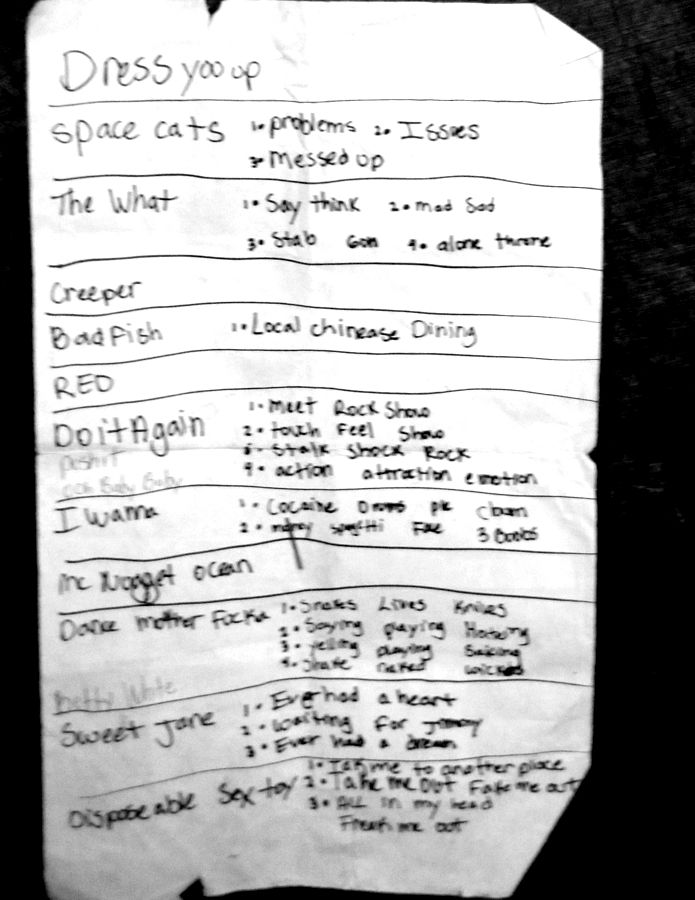 Dress yoo up
Space cats 1. problems 2. Issues
3. Messed up
The What 1. Say think 2. mad Sad
3. Stab Gon 4. alone throne
Creeper
Bad Fish 1. Local chinease Dining
RED
Do it Again 1. Meet Rock Show
2. touch Feel Show
3. Stalk Shock Rock
4. action attraction emotion
ooh Baby Baby
I wanna 1. Cocaine
2. money Fae 3 Boobs
mc Nugget ocean
Dance mother Fucka 1. Snakes Lines Knives
2. Saying playing
3. yelling playing
4. Shake naked wicked
Betty White
Sweet Jane 1. Ever had a heart
2. waiting For Jimmy
3. Ever had a dream
Disposeable Sex toy 1. Take me to another place
2. Take me out Fake me out
3. ALL in my head
Freak me out